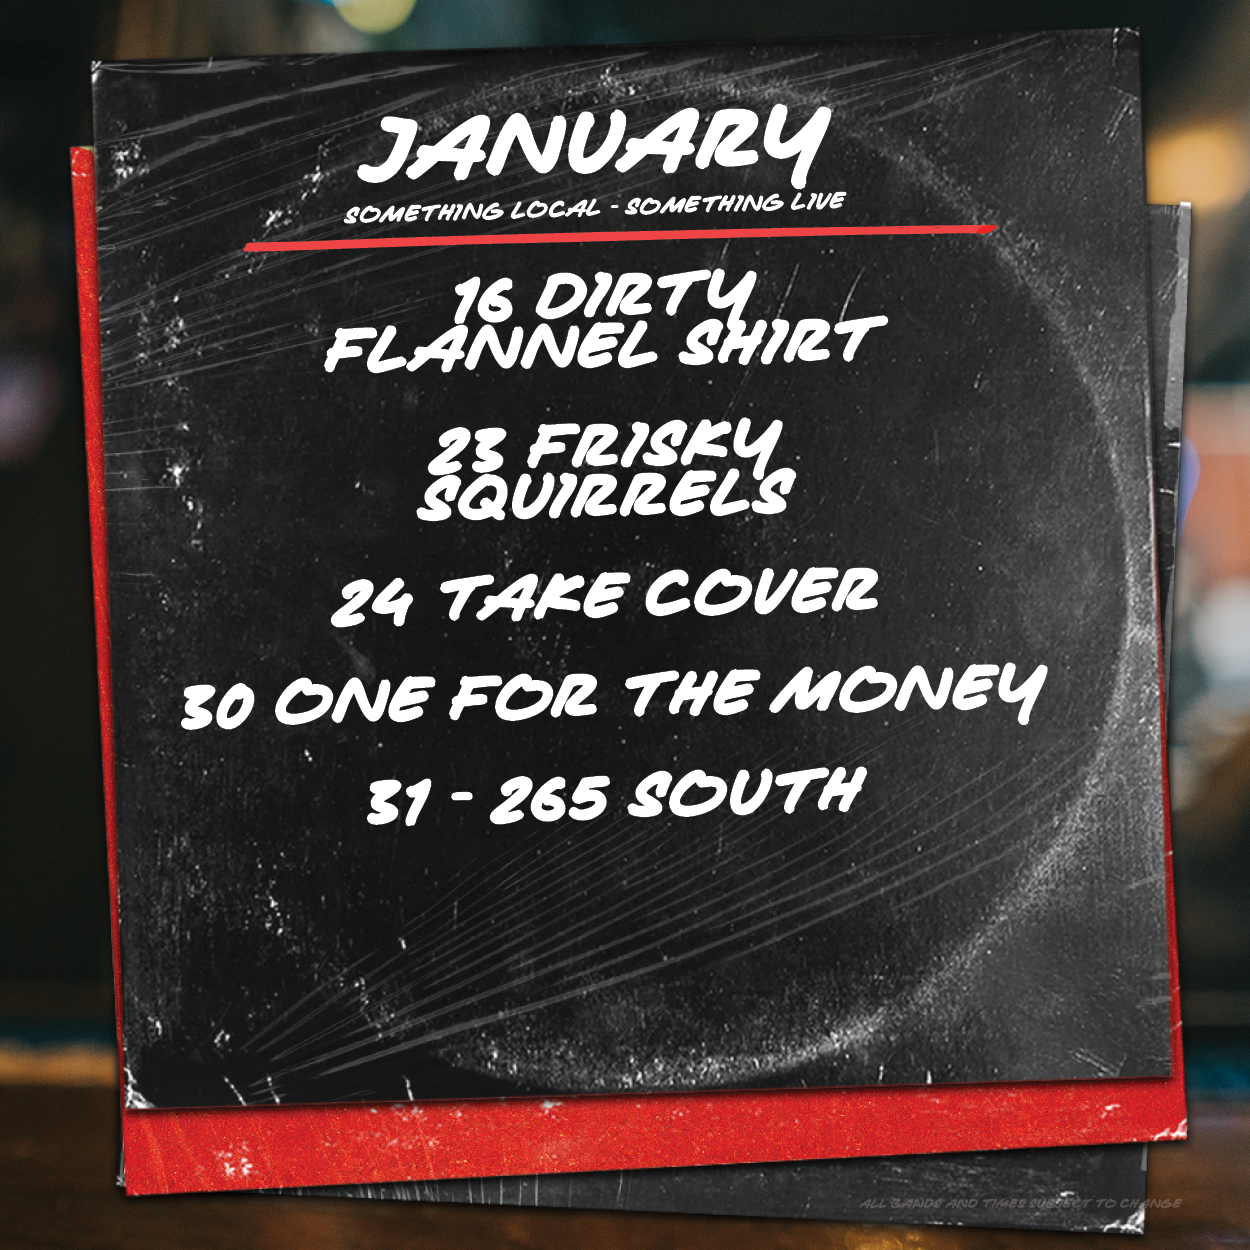 JANUARY
SOMETHING LOCAL - SOMETHING LIVE
16 DIRTY
FLANNEL SHIRT
23 FRISKY
SQUIRRELS
24 TAKE COVER
30 ONE FOR THE MONEY
31 - 265 SOUTH
ALL BANDS AND TIMES SUBJECT TO CHANGE